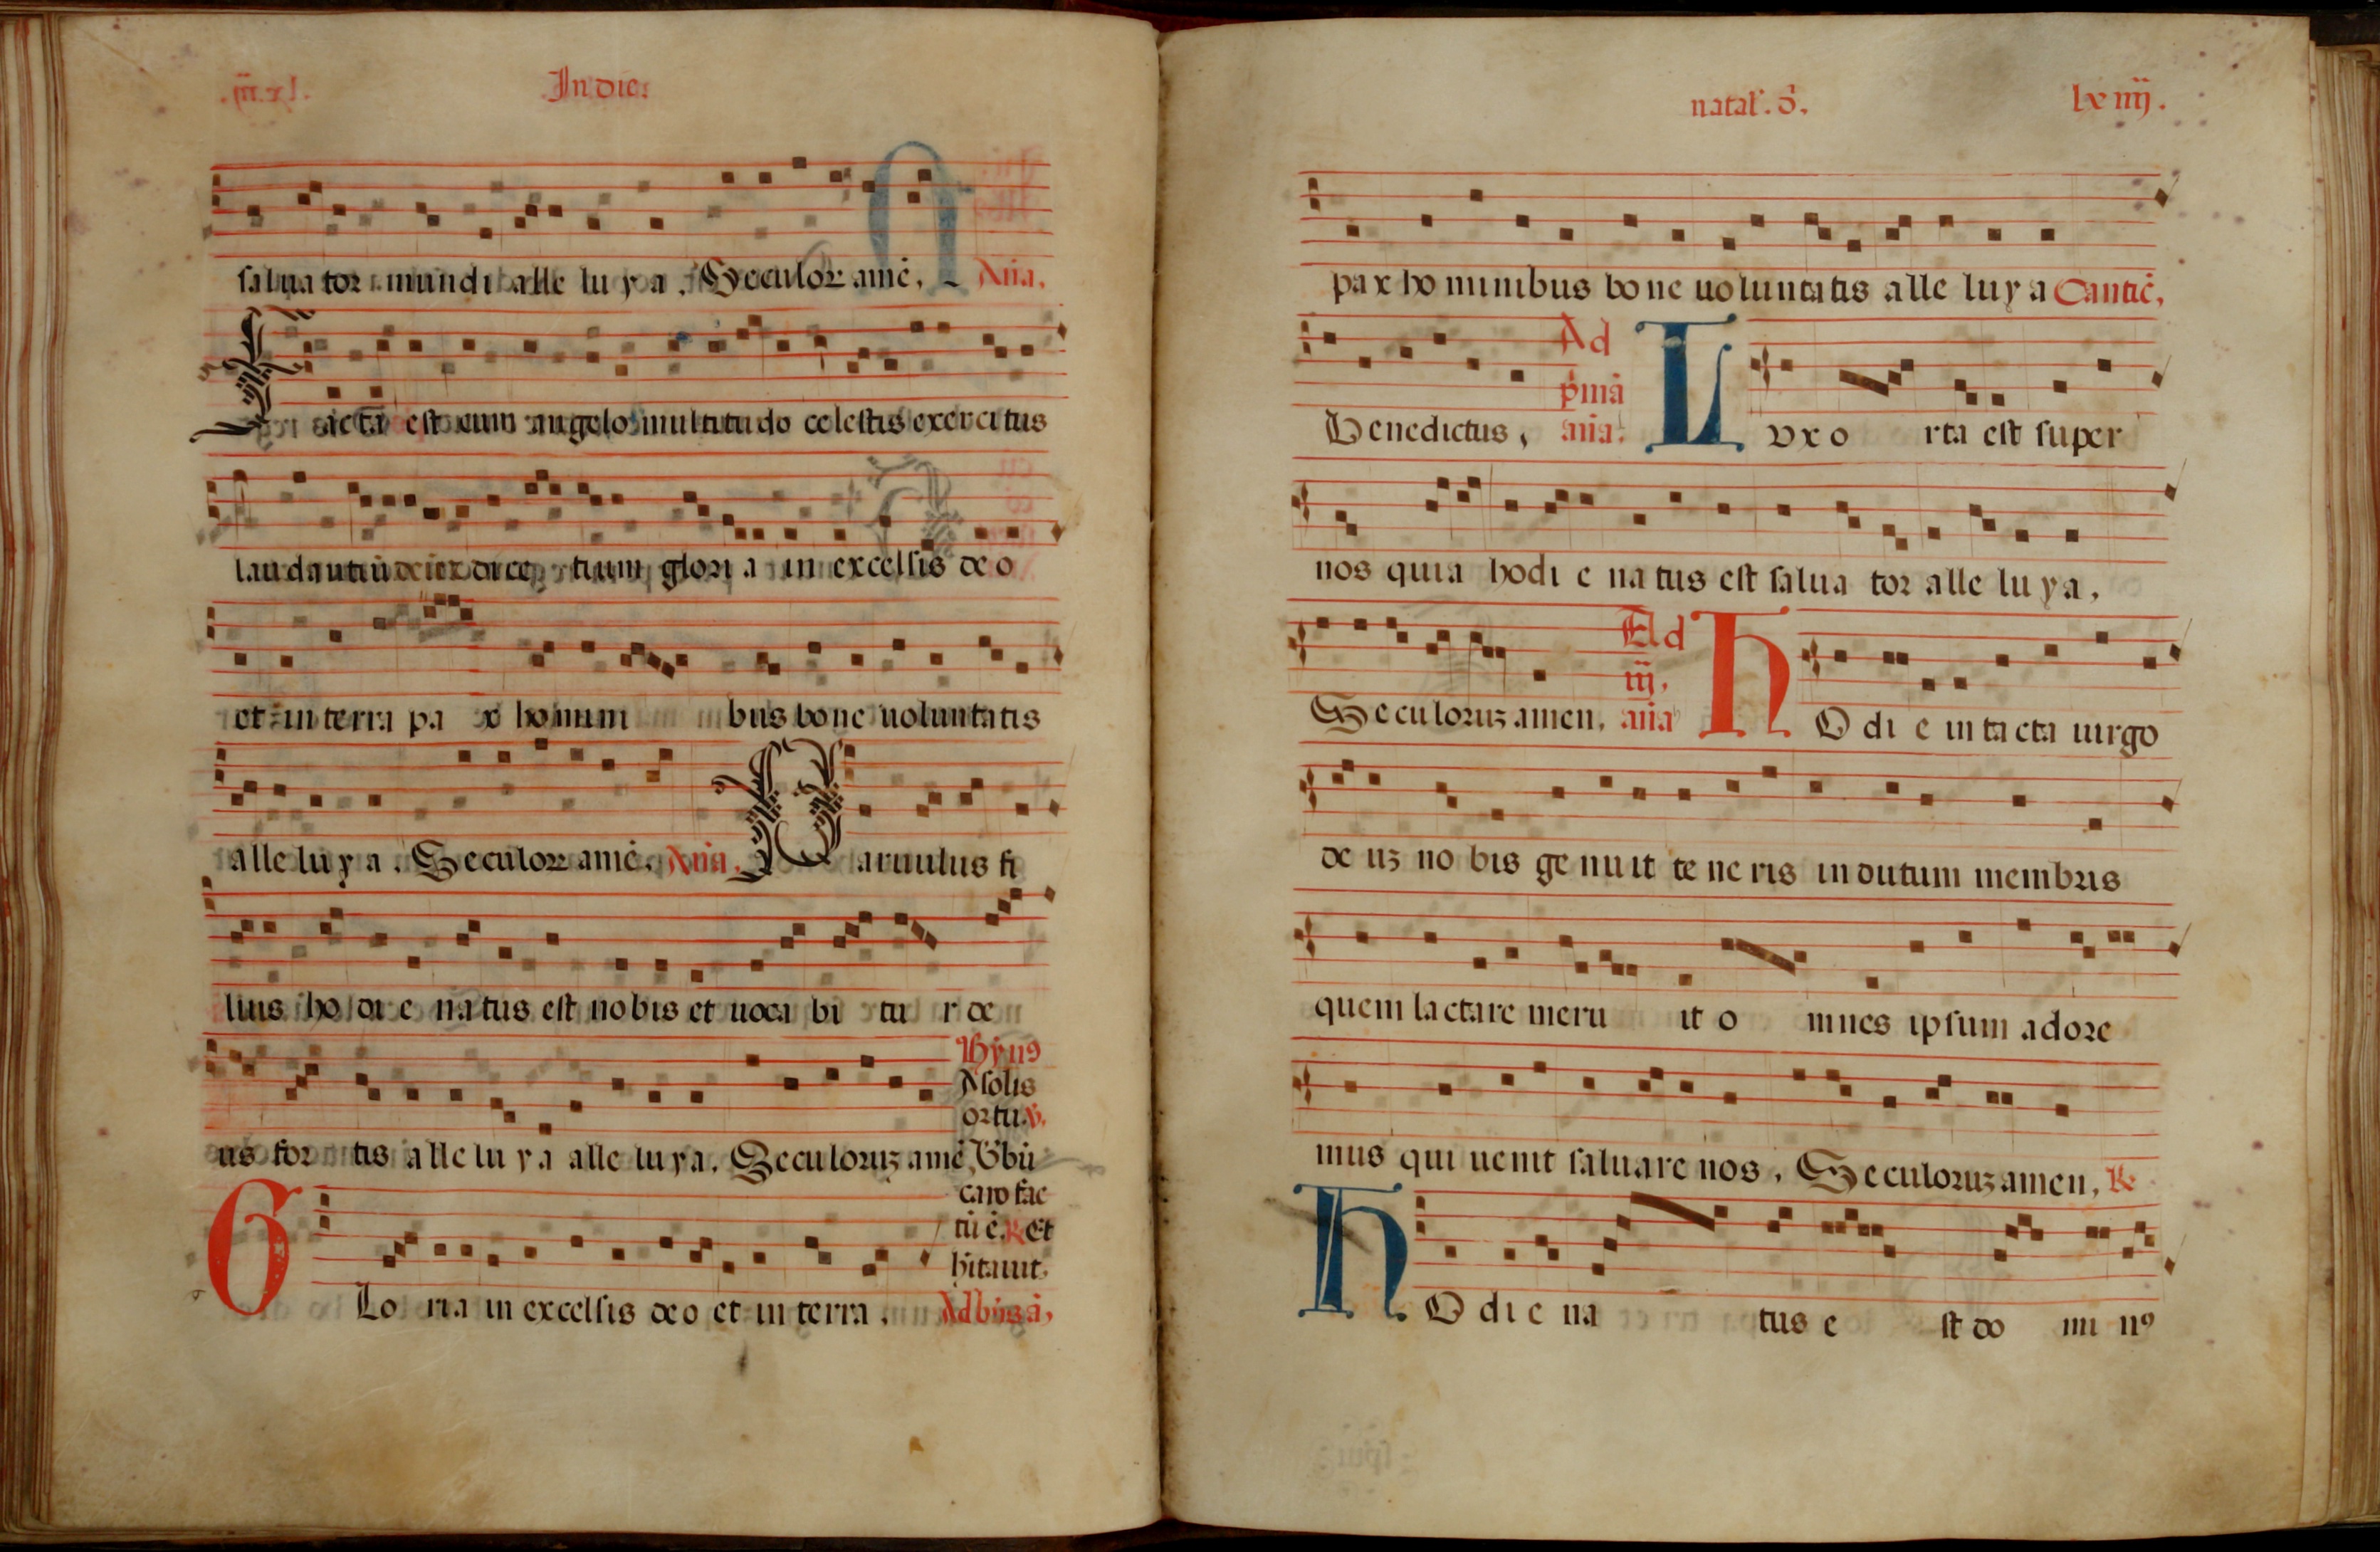 In die.
salua tor mundi alle lu y a. Seculor amē. Añā.
F acta est cum angelo multitudo celestis exercitus
laudantiū et dice tium glori a in excelsis deo
et in terra pa x homini bus bone uoluntatis
alle lu y a. Seculor amē. Añā. P aruulus fi
lius ho di e na tus est nobis et uoca bi tu r de
Hȳn⁹
A solis
ortu. ℣.
us for tis alle lu ya alle lu ya. Seculoruꝫ amē, Ubū
caro fac
tū ē. ℟ Et
hitauit.
G Lo ria in excelsis deo et in terra. Ad bn̄s ā.
natal'. d̄.
lx iiij.
pax ho minibus bo ne uoluntatis alle luy a Cantic̄.
Ad
p̄mā
Benedictus, añā. L vx o rta est super
nos quia hodi e na tus est salua tor alle lu ya,
Ad
iij.
Seculoruꝫ amen. añā H O di e in ta cta uirgo
de uꝫ no bis ge nu it te ne ris in dutum membris
quem lactare meru it o mnes ipsum adore
mus qui uenit saluare nos, Seculoruꝫ amen, ℟
H O di e na tus e st do mi n⁹